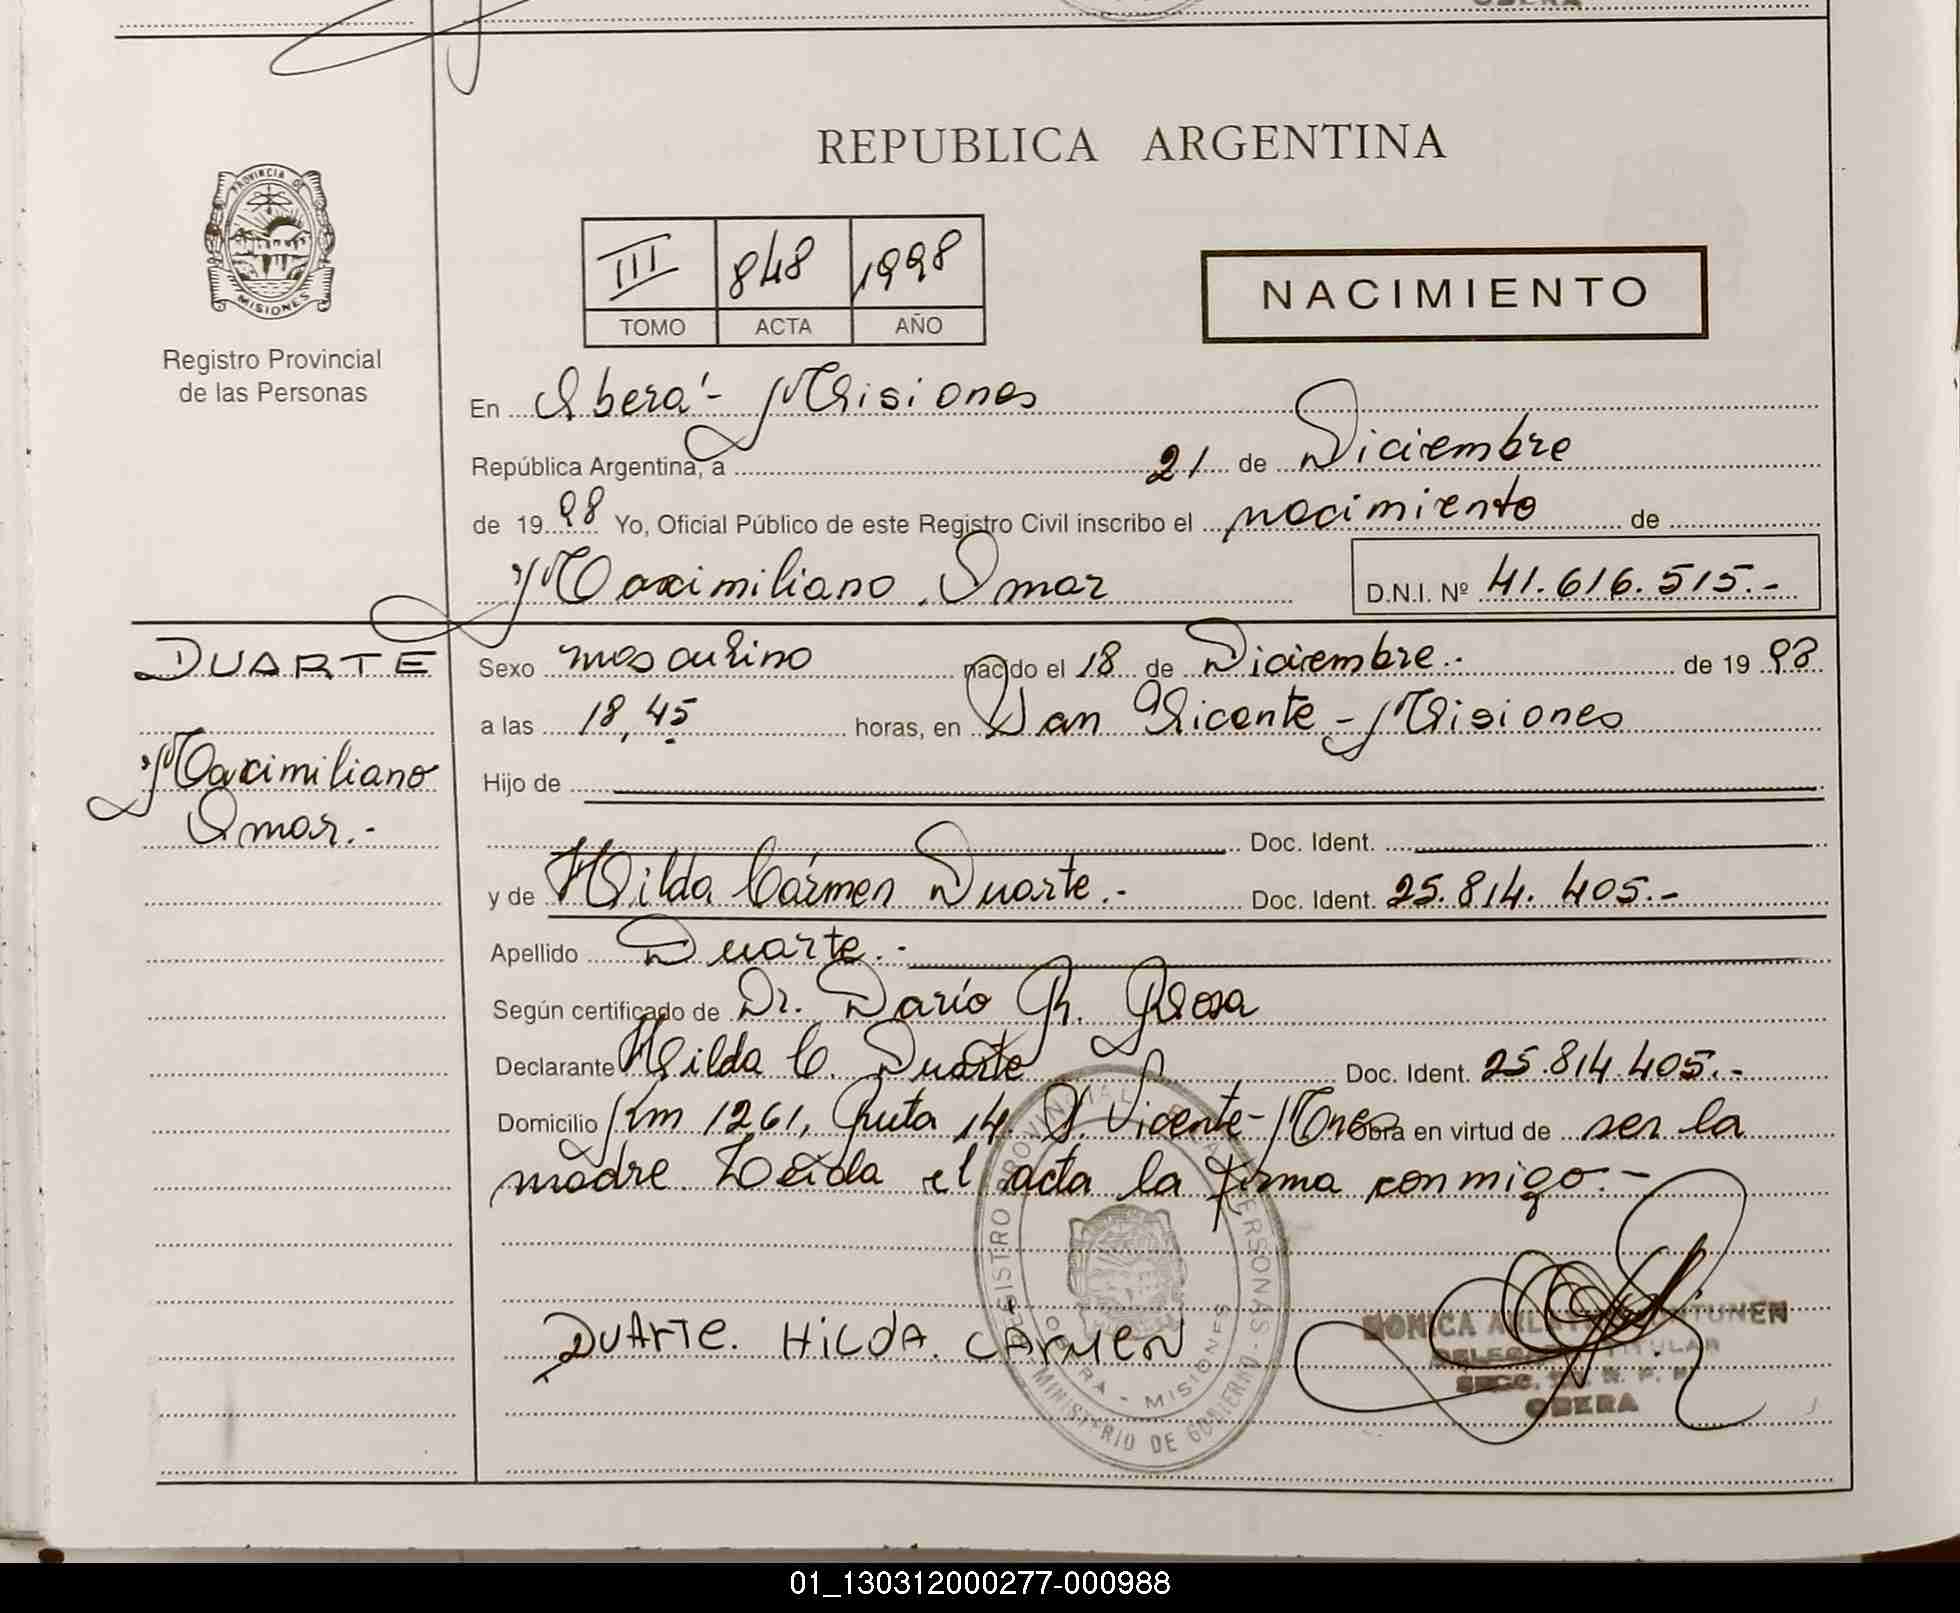 REPUBLICA ARGENTINA
PROVINCIA DE
MISIONES
Registro Provincial
de las Personas
III 848 1998
TOMO ACTA AÑO
NACIMIENTO
En Oberá - Misiones
República Argentina, a 21 de Diciembre
de 1998 Yo, Oficial Público de este Registro Civil inscribo el nacimiento de
Maximiliano Omar D.N.I. Nº 41.616.515.-
DUARTE
Maximiliano
Omar.-
Sexo masculino nacido el 18 de Diciembre.- de 1998
a las 18,45 horas, en San Vicente - Misiones
Hijo de
Doc. Ident.
y de Hilda Cármen Duarte.- Doc. Ident. 25.814.405.-
Apellido Duarte.-
Según certificado de Dr. Darío R. Rosa
Declarante Hilda C. Duarte Doc. Ident. 25.814.405.-
Domicilio Km 1261, Ruta 14. S. Vicente - Mnes Obra en virtud de ser la
madre Leida el acta la firma conmigo.-
DUARTE. HILDA. CARMEN
REGISTRO PROVINCIAL DE LAS PERSONAS - MINISTERIO DE GOBIERNO -
OBERA - MISIONES
MONICA
DELEGADA TITULAR
SECC. R. P. P.
OBERA
01_130312000277-000988